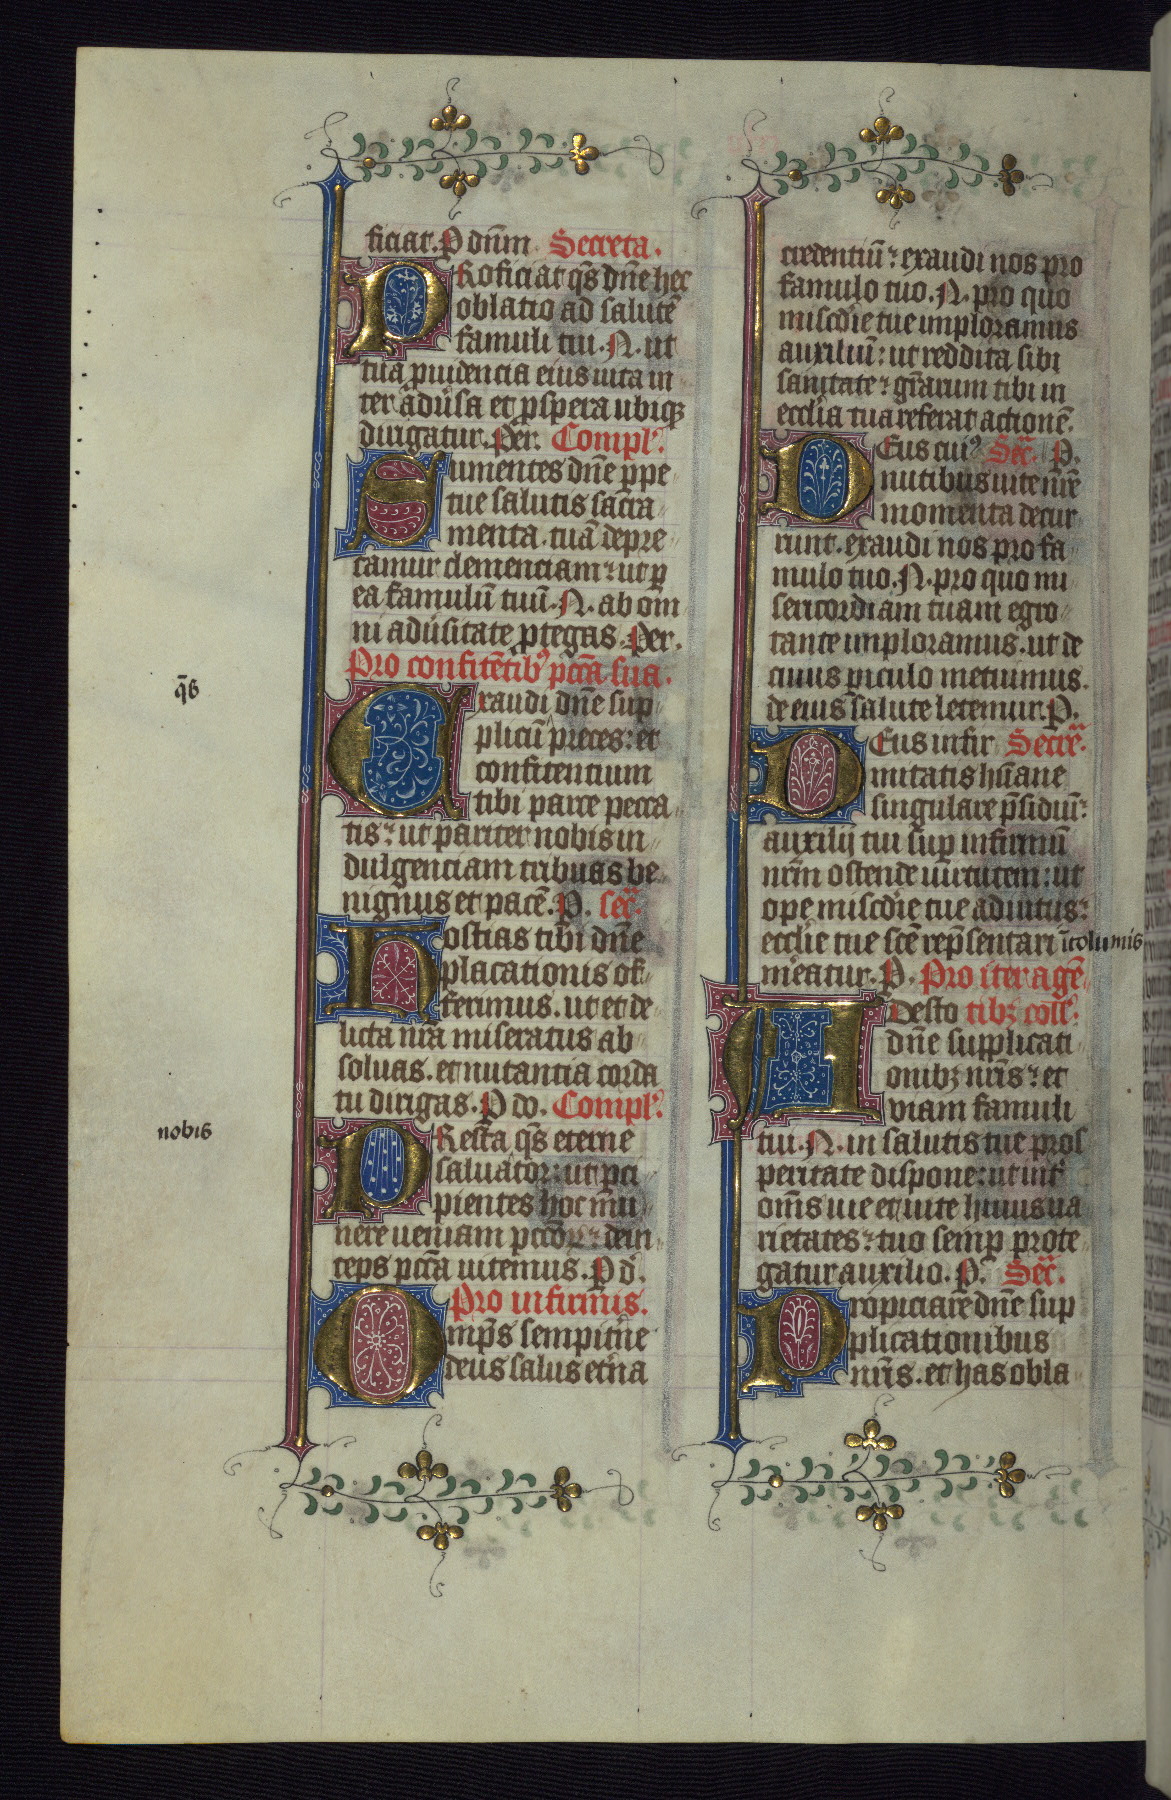 ficiat. P dnm Secreta.
PRoficiat qs dne hec
oblatio ad salutē
famuli tui. N. ut
tua puidencia eius uita in
ter adusa et pspera ubiq
dirigatur. Per. Compl.
Sumentes dne ppe
tue salutis sacra
menta. tuā depre
camur clemenciam: ut p
ea famulū tuū. N. ab om
ni adusitate ptegas. Per.
Pro confitētib pcca sua.
Exaudi dne sup
plicū preces: et
qs
confitentium
tibi parce pecca
tis: ut pariter nobis in
dulgenciam tribuas be
nignus et pacē. P. sec.
Hostias tibi dne
placationis of
ferimus. ut et de
licta nra miseratus ab
soluas. et nutantia corda
tu dirigas. P do. Compl.
PResta qs eterne
nobis
saluator: ut pci
pientes hoc mu
nere ueniam pccor: dein
ceps pcca uitemus. P d.
Pro infirmis.
Omps sempitne
deus salus etna
credentiū: exaudi nos pro
famulo tuo. N. pro quo
miscdie tue imploramus
auxiliū: ut reddita sibi
sanitate: grarum tibi in
ecclia tua referat actionē.
DEus cui Sec. P.
nutibus uite nre
momenta decur
runt. exaudi nos pro fa
mulo tuo. N. pro quo mi
sericordiam tuam egro
tante imploramus. ut de
cuius piculo metuimus.
de eius salute letemur. P.
DEus infir Secre.
mitatis hūane
singulare psidiū:
auxilij tui sup infirmū
nrm ostende uirtutem: ut
ope miscdie tue adiutus:
ecclie tue sce repsentari īcolumis
mereatur. P. Pro iter agē
ADesto tibz coll.
dne supplicati
onibz nris: et
viam famuli
tui. N. in salutis tue pros
peritate dispone: ut int
oms uie et uite huius ua
rietates: tuo semp prote
gatur auxilio. P. Sec.
Propiciare dne sup
plicationibus
nris. et has obla